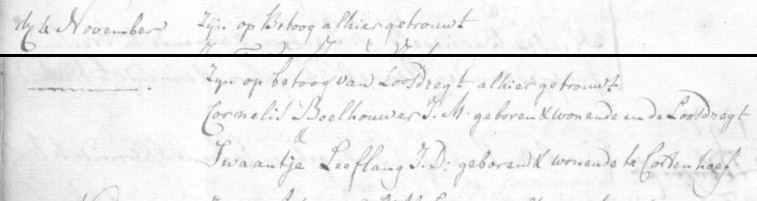 den 4 November Zijn op Betoog alhier getrouwt
Zijn op betoog van Loosdregt alhier getrouwt
Cornelis Boelhouwer J.M. geboren & wonende in de Loosdregt
&
Swaantje Leeflang J.D: geboren & wonende te Cortenhoef